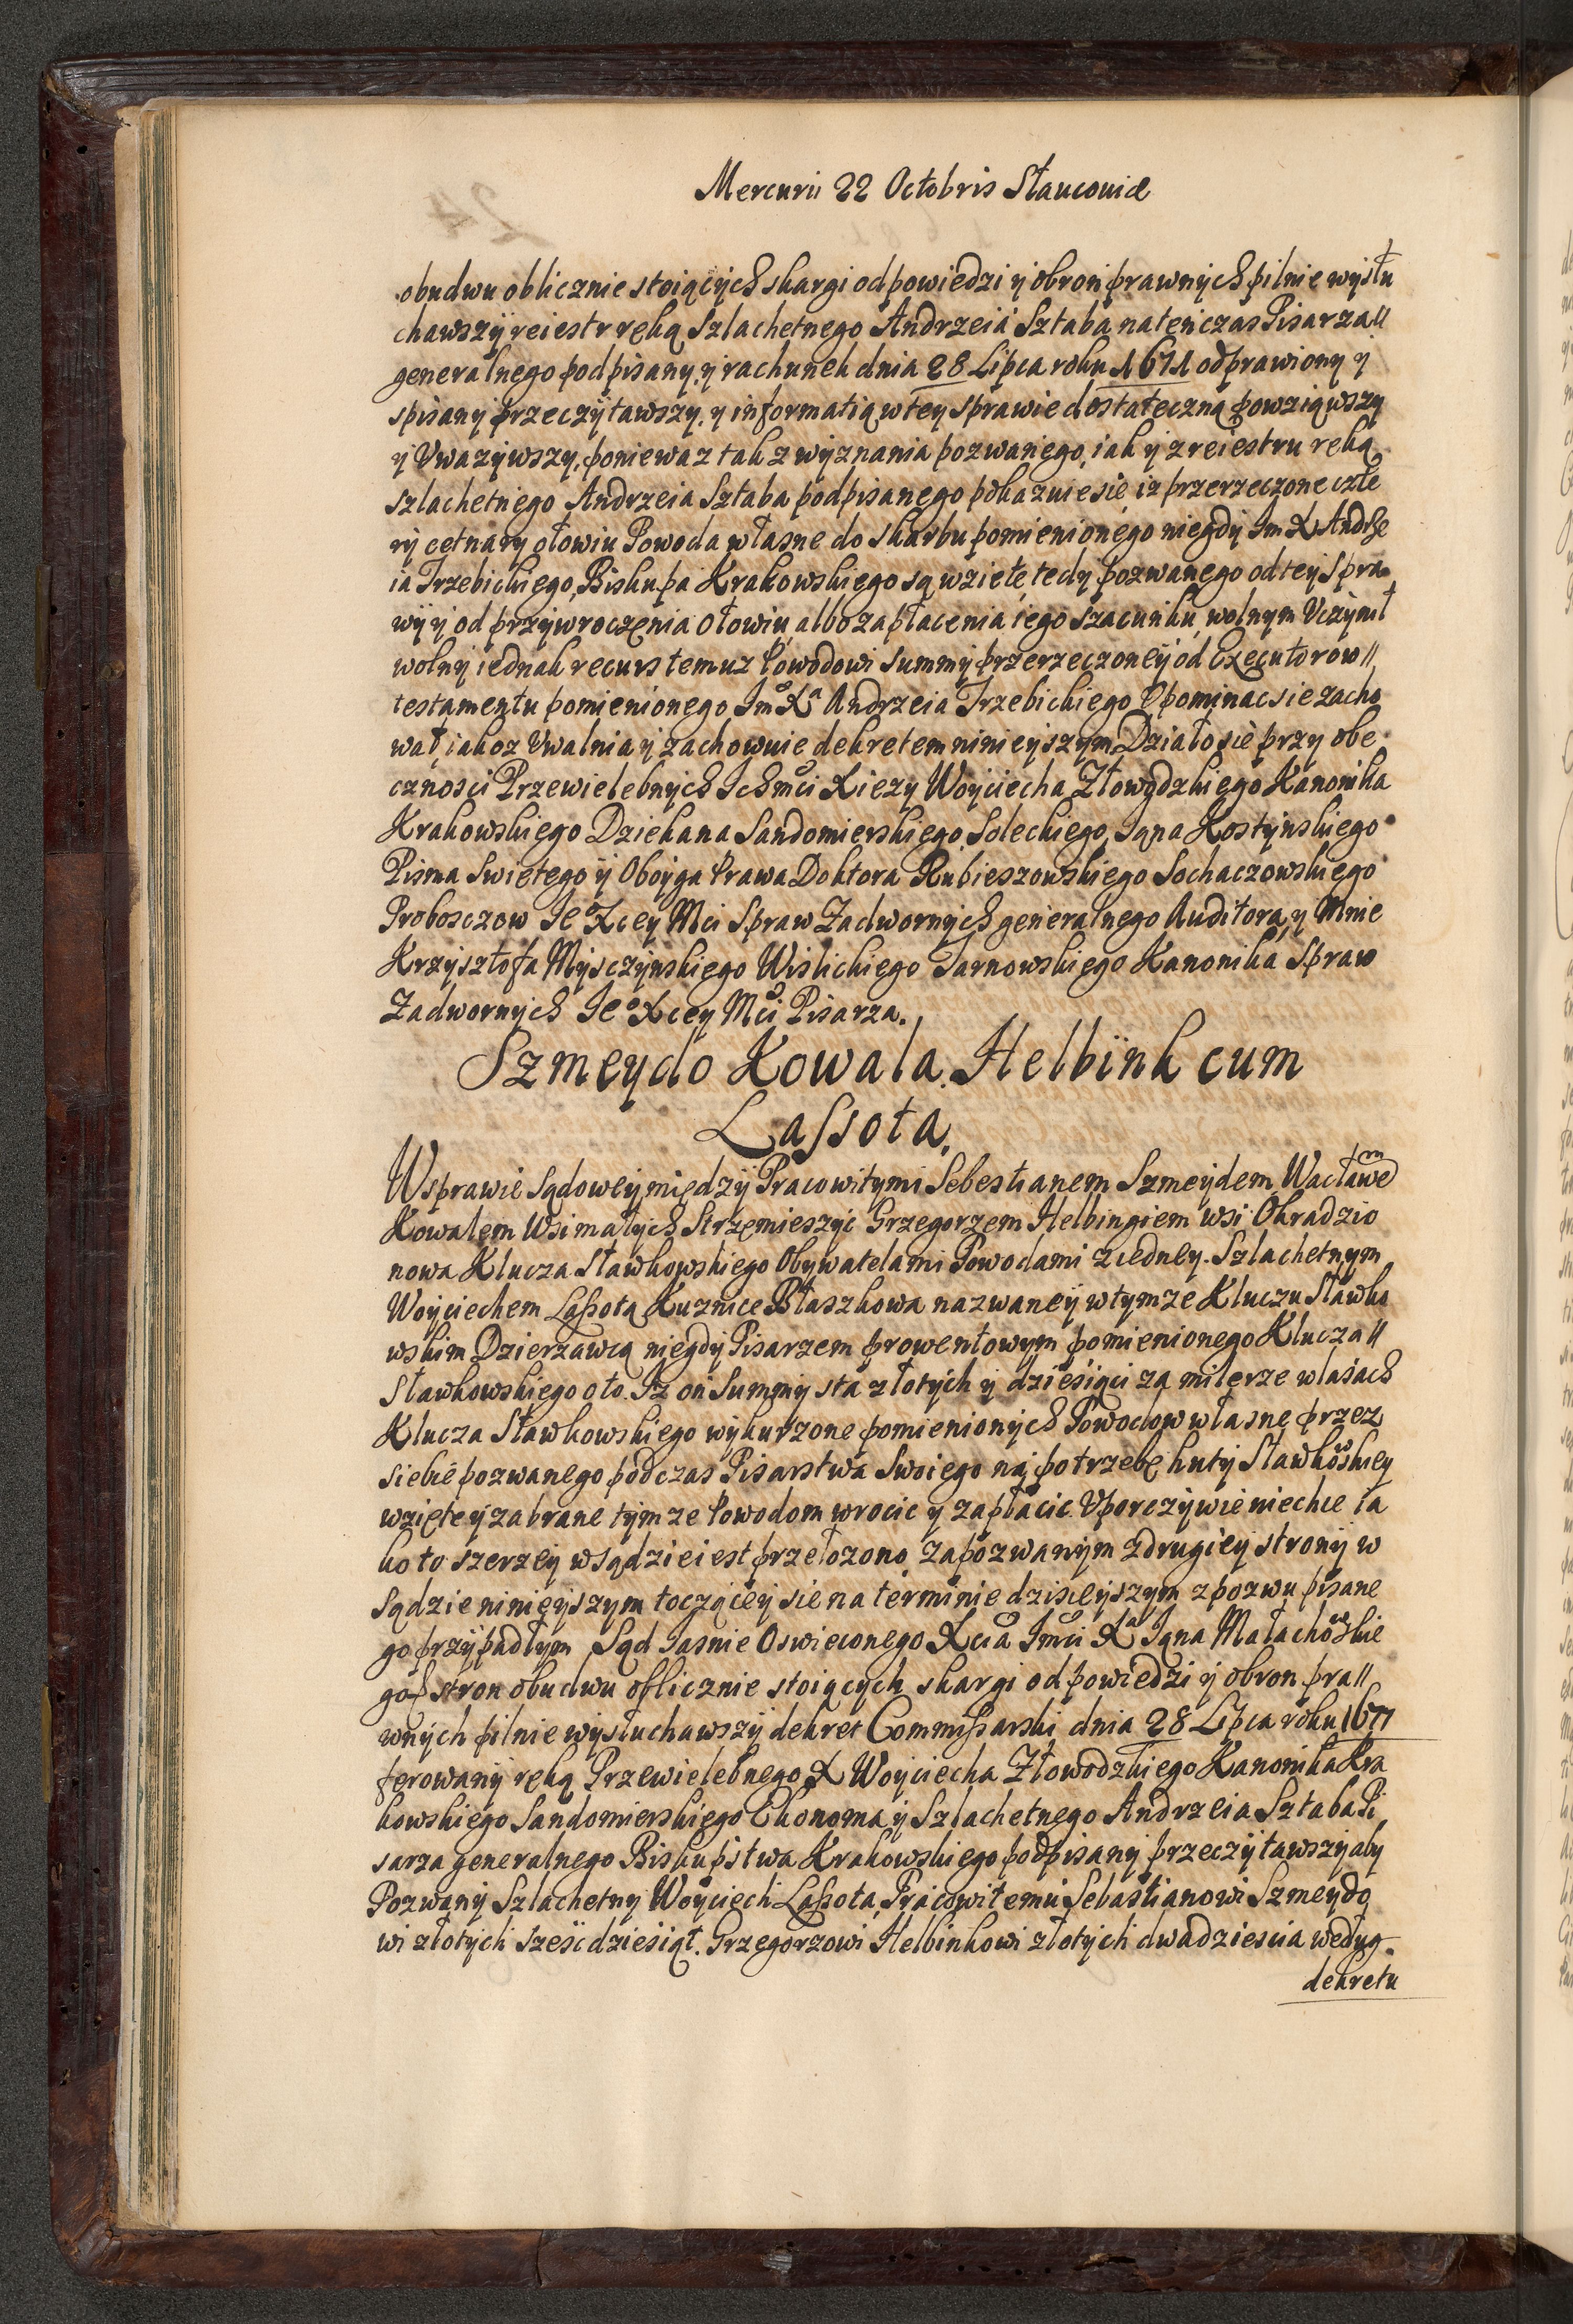 Mercurii 22 Octobris Slauconiæ
obudwu oblicznie stoiących skargi odpowiedzi y obron prawnych pilnie wysłu
chawszy reiestr ręką Szlachetnego Andrzeia Sztaba natenczas Pisarza//
generalnego podpisany, y rachunek dnia 28 Lipca roku 1671 odprawiony y
spisany przeczytawszy, y informatią w tey sprawie dostateczną powziąwszy
y Vwazywszy, poniewaz tak z wyznania pozwanego, iak y z reiestru ręką
szlachetnego Andrzeia Sztaba podpisanego pokazuie się, iz przerzeczone czte
ry cetnary ołowiu Powoda własne do skarbu pomienionego niegdy Im X Andrze
ia Trzebickiego, Biskupa Krakowskiego są wziete, tedy pozwanego od tey spra
wy y od przywroczenia ołowiu, albo zapłacenia iego szacunku, wolnym Vczynił
wolny iednak recurs temuz Powodowi summy przerzeczoney od Executorow//
testamentu pomienionego Im Xa Andrzeia Trzebickiego Vpominac sie zacho
wał, iakoz Vwalnia y zachowuie dekretem ninieyszym. Działo się przy obe
cznosci Przewielebnych Ichmci Xiezy Woyciecha Złowodzkiego Kanonika
Krakowskiego Dziekana Sandomierskiego, Soleckiego, Iana Kostynskiego
Pisma Swiętego y Oboyga Prawa Doktora Rubieszowskiego Sochaczowskiego
Proboszczow Ie Xcey Mci Spraw Zadwornych generalnego Auditora, y Mnie
Krzysztofa Mysczynskiego Wislickiego Tarnowskiego Kanonika Spraw
Zadwornych Ie Xcey Mci Pisarza.
Szmeydo Kowala. Helbink cum
Lassota.
W sprawie Sądowey między Pracowitymi Sebestianem Szmeydem Wacławem
Kowalem Wsi małych Strzemieszyc Grzegorzem Helbingiem wsi Okradzio
nowa Klucza Sławkowskiego Obywatelami Powodami z iedney. Szlachetnym
Woyciechem Lassota Kuznice Błaszkowa nazwaney w tymze Kluczu Sławko
wskim Dzierzawcą niegdy Pisarzem prowentowym pomienionego Klucza//
Sławkowskiego oto. Iz on Summy sta złotych y dziesiąci zą milerze w lasach
Klucza Sławkowskiego wykurzone pomienionych Powodow własne przez
siebie pozwanego podczas Pisarstwa Swoiego na potrzebę huty Sławkowskiey
wzięte y zabrane tymze Powodom wrocic y zapłacic Vporczywie niechce ia
ko to szerzey w sądzie iest przełozono, zapozwanym z drugiey strony w
Sądzie ninieyszym toczącey sie na terminie dzisieyszym z pozwu pisane
go przypadłym Sąd Iasnie Oswieconego Xcia Imci Xa Iana Małachowskie
go stron obudwu oblicznie stoiących skargi odpowiedzi y obron pra//
wnych pilnie wysłuchawszy dekret Commissarski dnia 28 Lipca roku 1671
ferowany ręką Przewielebnego X Woyciecha Złowodzkiego Kanonika Kra
kowskiego Sandomierskiego Ekonoma y Szlachetnego Andrzeia Sztaba Pi
sarza generalnego Biskupstwa Krakowskiego podpisany przeczytawszy aby
Pozwany Szlachetny Woyciech Lassota, Pracowitemu Sebastianowi Szmeydo
wi złotych szescdziesiąt. Grzegorzowi Helbinkowi złotych dwadziescia według
dekretu